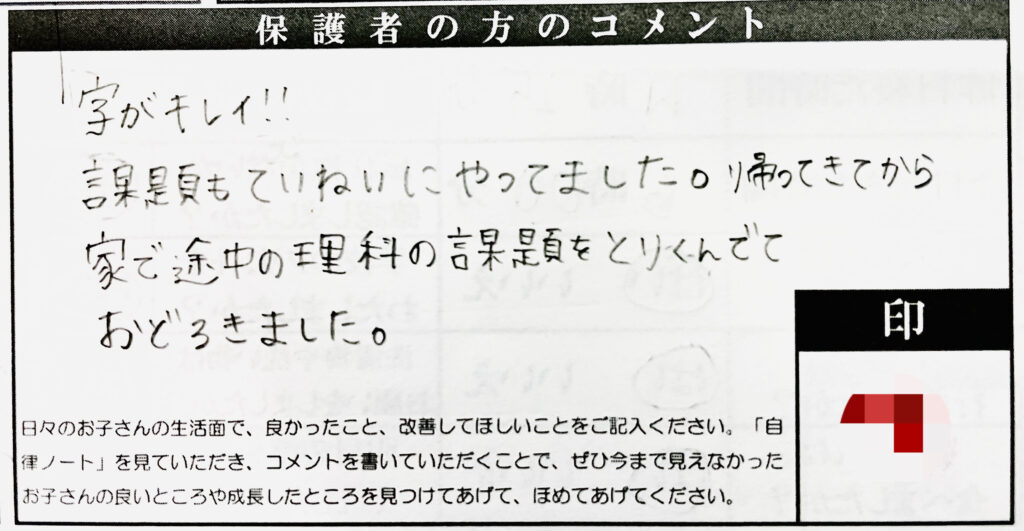 保護者の方のコメント
字がキレイ!!
課題もていねいにやってました。帰ってきてから
家で途中の理科の課題をとりくんでて
おどろきました。
印
日々のお子さんの生活面で、良かったこと、改善してほしいことをご記入ください。「自
律ノート」を見ていただき、コメントを書いていただくことで、ぜひ今まで見えなかった
お子さんの良いところや成長したところを見つけてあげて、ほめてあげてください。